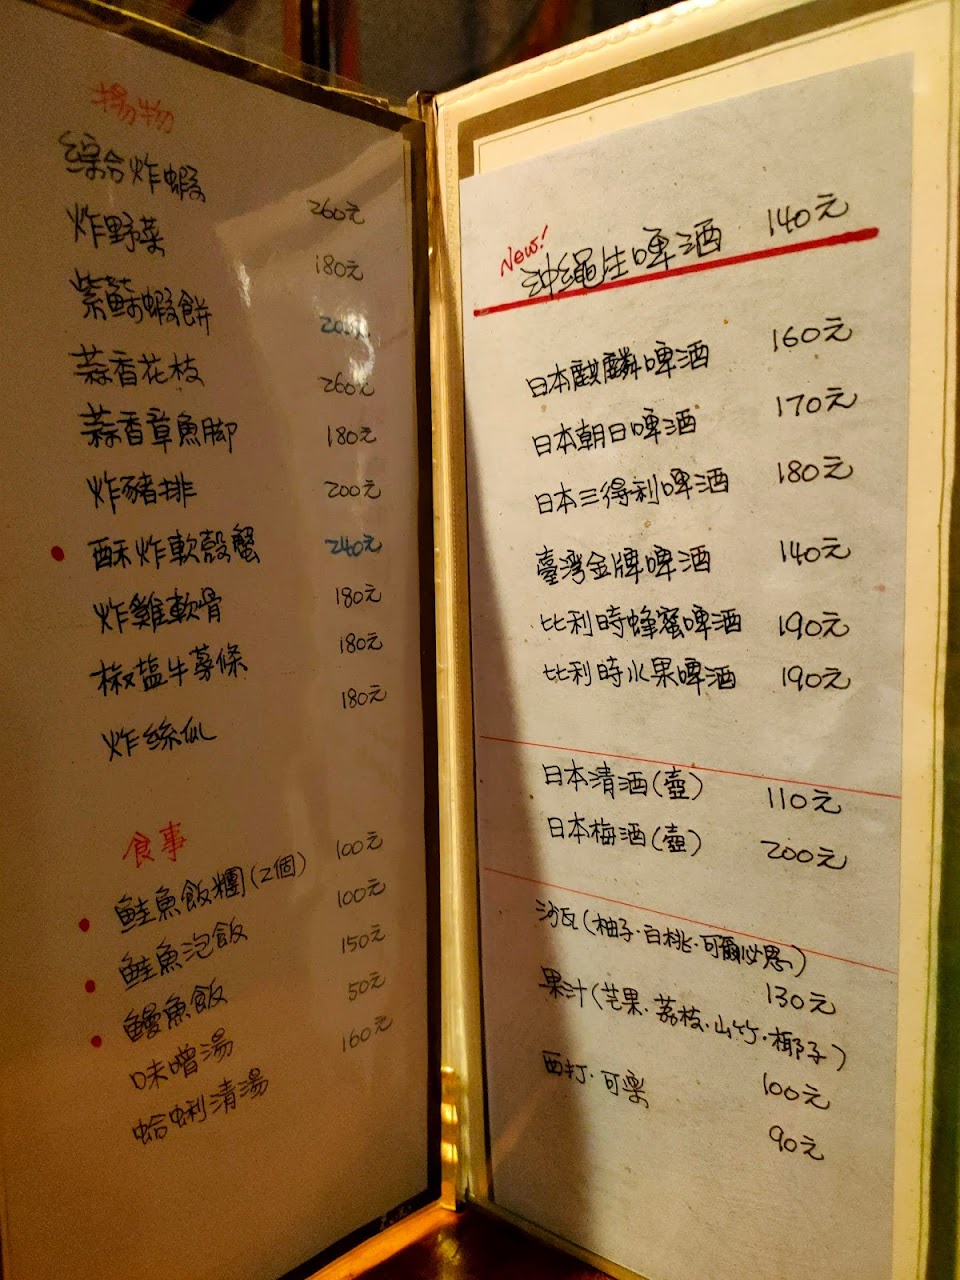 揚物
綜合炸蝦 260元
炸野菜 180元
紫蘇蝦餅 200元
蒜香花枝 260元
蒜香章魚脚 180元
炸豬排 200元
酥炸軟殼蟹 240元
炸雞軟骨 180元
椒鹽牛蒡條 180元
炸絲瓜 180元
食事
鮭魚飯糰(2個) 100元
鮭魚泡飯 100元
鰻魚飯 150元
味噌湯 50元
蛤蜊清湯 160元
New!
沖繩生啤酒 140元
日本麒麟啤酒 160元
日本朝日啤酒 170元
日本三得利啤酒 180元
臺灣金牌啤酒 140元
比利時蜂蜜啤酒 190元
比利時水果啤酒 190元
日本清酒(壺) 110元
日本梅酒(壺) 200元
沙瓦(柚子·白桃·可爾必思)
130元
果汁(芒果·荔枝·山竹·椰子)
100元
西打·可樂
90元